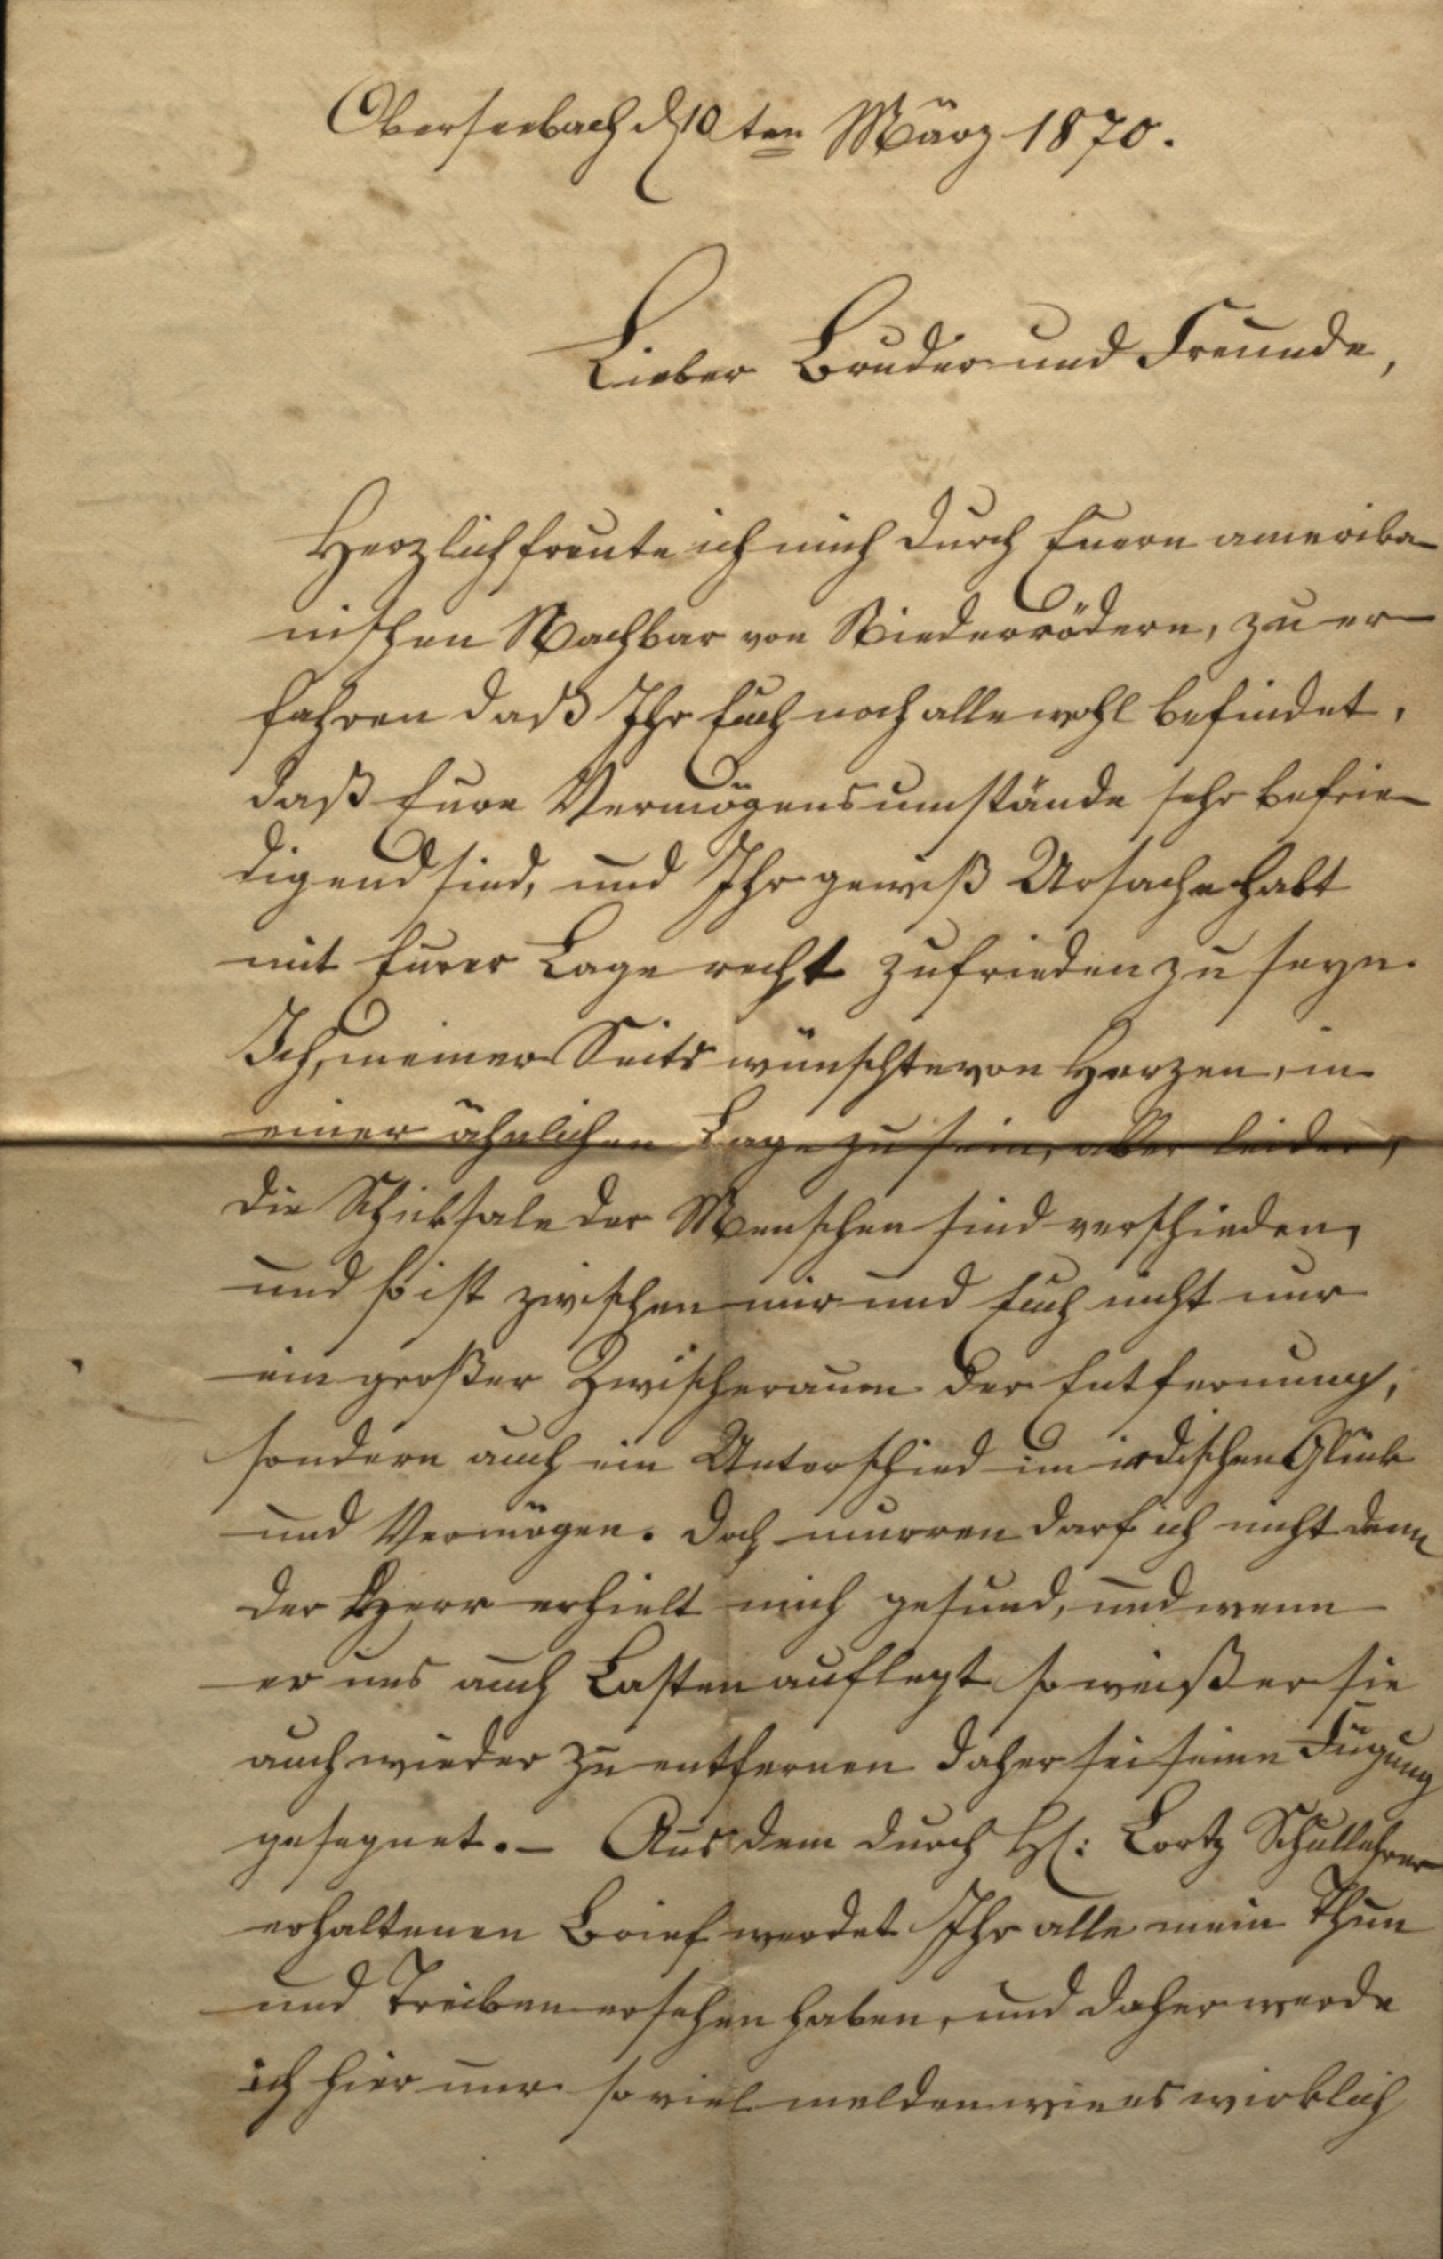 Oberseebach d 10ten März 1870.
Lieber Bruder und Freunde,
Herzlich freute ich mich durch Euern amerika-
nischen Nachbar von Niederrödern, zu er-
fahren daß Ihr Euch noch alle wohl befindet,
daß Eure Vermögensumstände sehr befrie-
digend sind, und Ihr gewiß Ursache habt
mit Eurer Lage recht zufrieden zu seyn.
Ich, meiner Seits wünschte von Herzen, in
einer ähnlichen Lage zu sein, aber leider,
die Schicksale der Menschen sind verschieden,
und so ist zwischen mir und Euch nicht nur
ein großer Zwischeraum der Entfernung,
sondern auch ein Unterschied im irdischen Glück
und Vermögen. Doch murren darf ich nicht denn
der Herr erhielt mich gesund, und wenn
er uns auch Lasten auflegt so weiß er sie
auch wieder zu entfernen daher sei seine Fügung
gesegnet. – Aus dem durch H: Lortz Schullehrer
erhaltenen Brief werdet Ihr alle mein Thun
und Treiben ersehen haben, und daher werde
ich hier nur so viel melden wie es wirklich